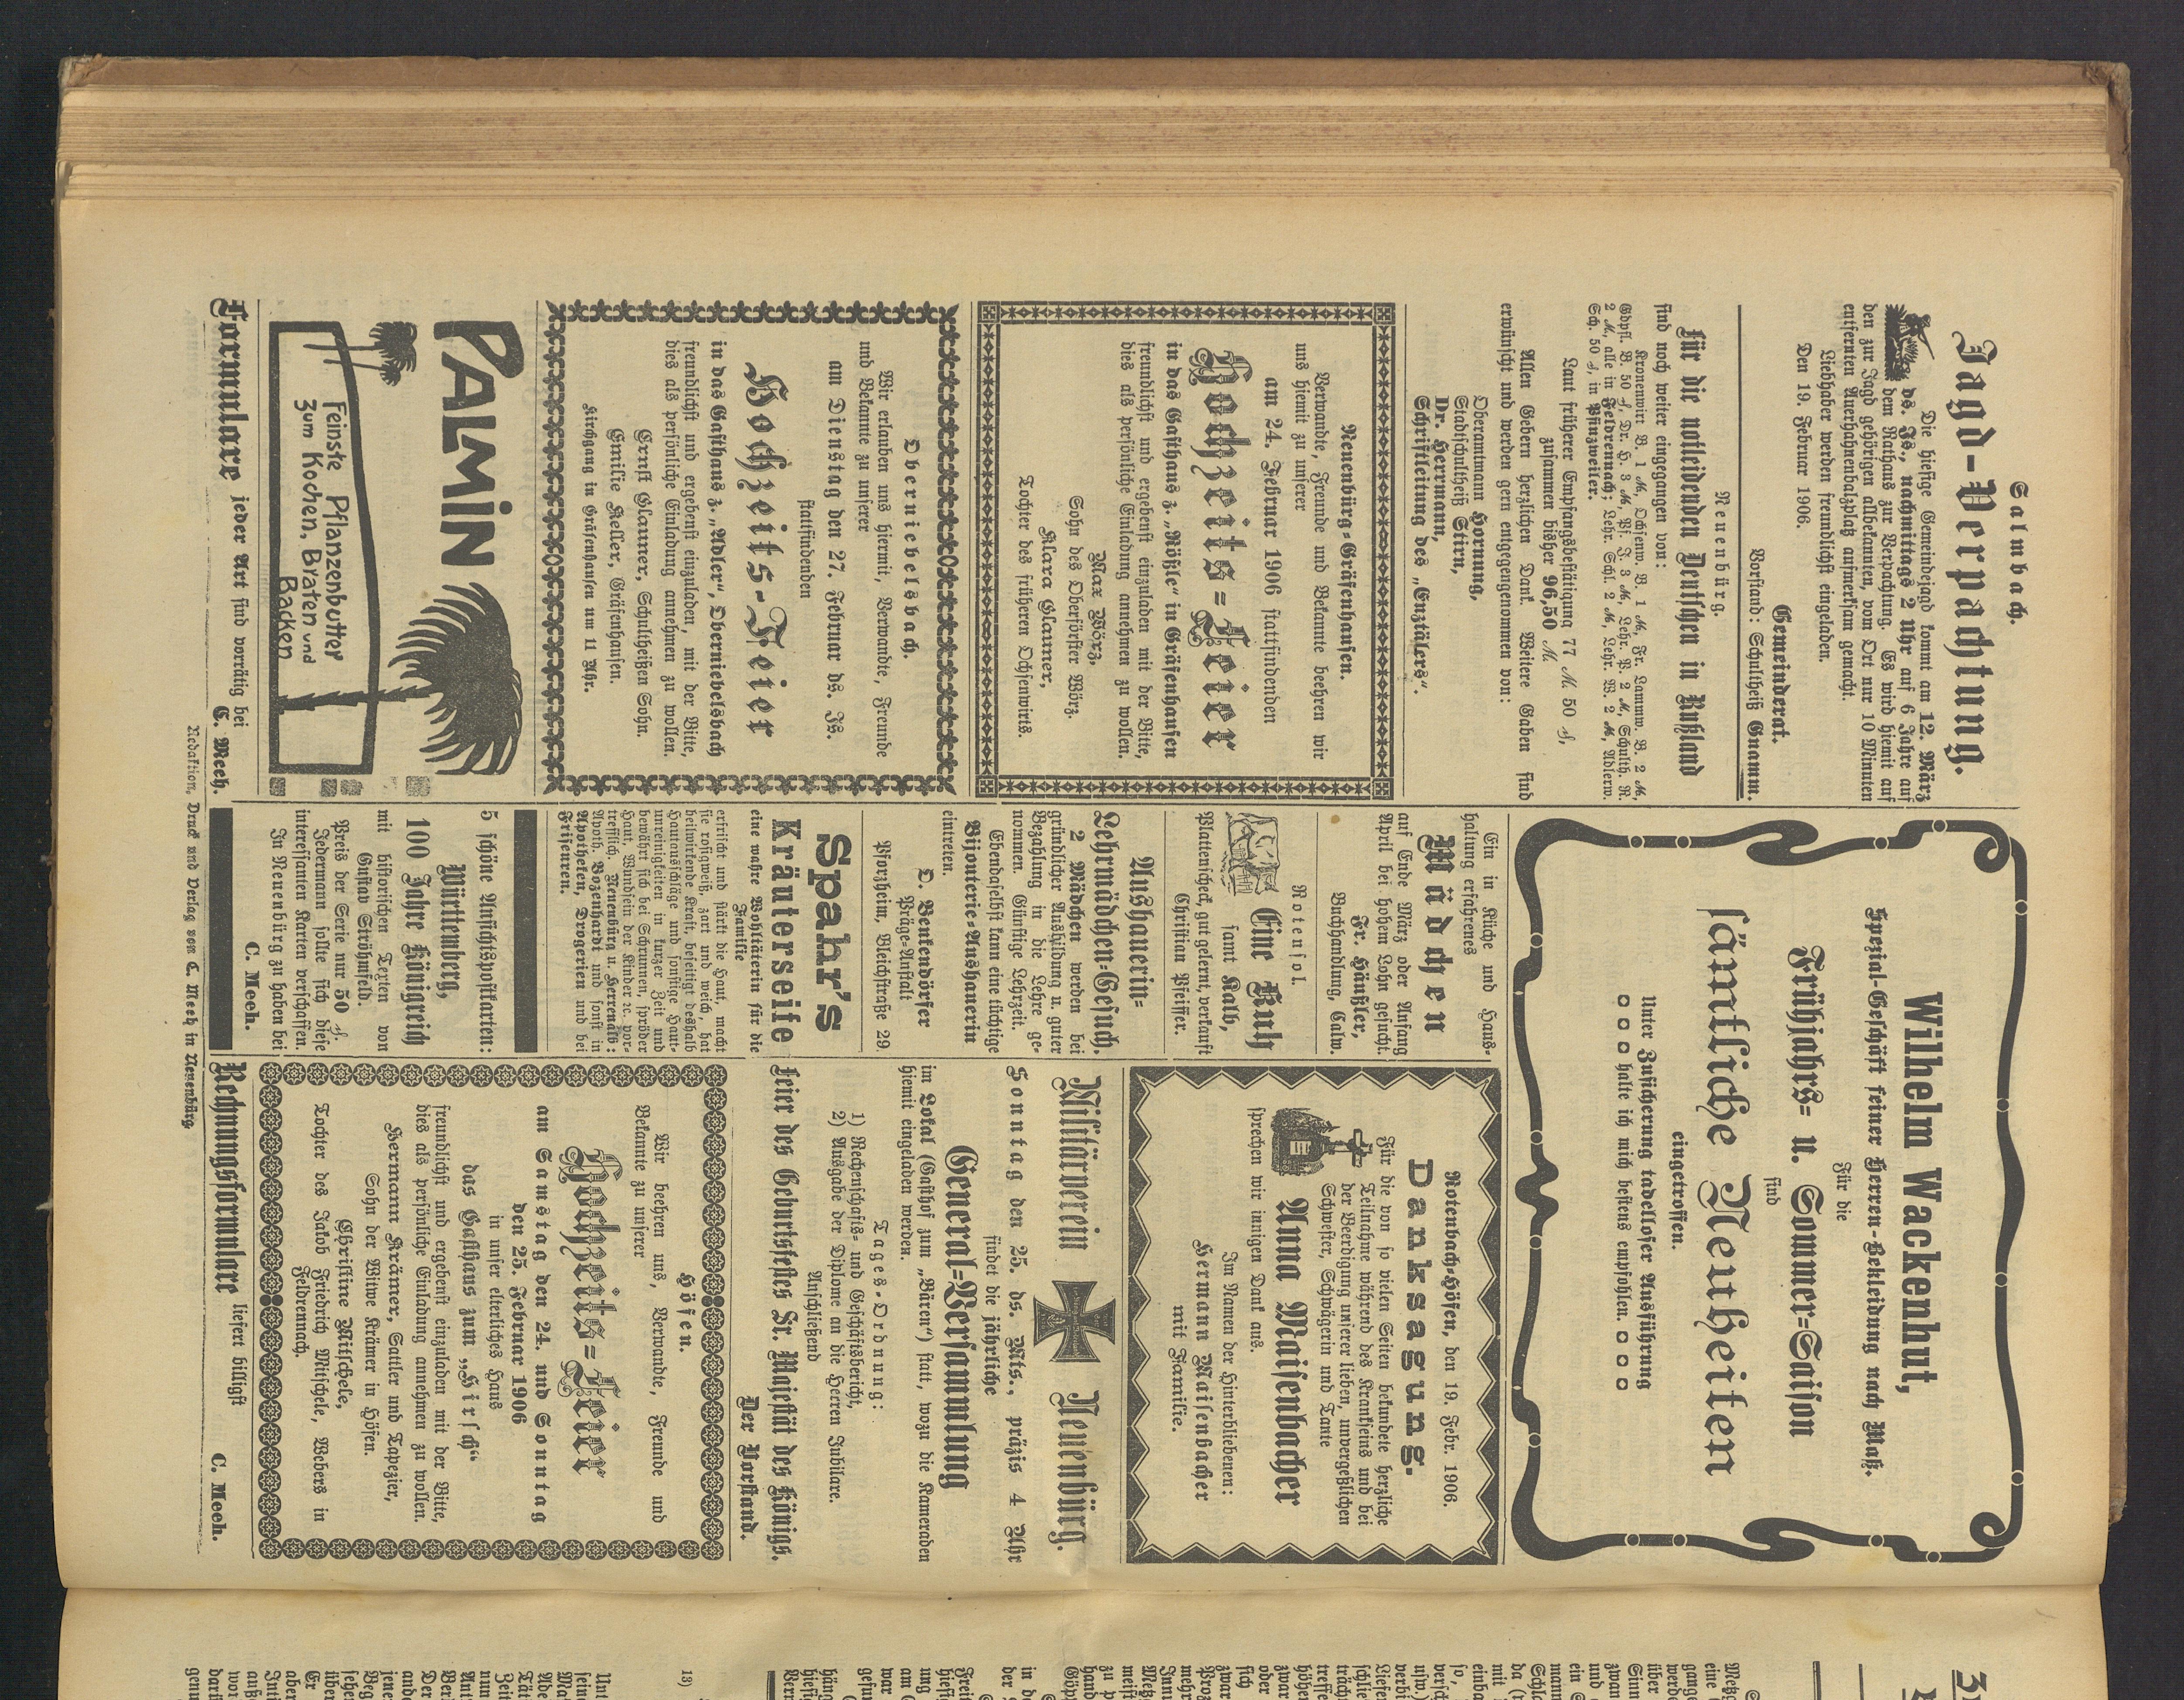 Salmbach.
Jagd-Verpachtung.
Die hiesige Gemeindejagd kommt am 12. März
ds. Js., nachmittags 2 Uhr auf 6 Jahre auf
dem Rathaus zur Verpachtung. Es wird hiemit auf
den zur Jagd gehörigen allbekannten, vom Ort nur 10 Minuten
entfernten Auerhahnenbalzplatz aufmerksam gemacht.
Liebhaber werden freundlichst eingeladen.
Den 19. Februar 1906.
Gemeinderat.
Vorstand: Schultheiß Gnamm.
Neuenbürg.
Für die notleidenden Deutschen in Rußland
sind noch weiter eingegangen von:
Kronenwirt B. 1 M, Ochsenw. B. 1 M, Fr. Lammw. B. 2 M,
Gdpfl. B. 50 ₰, Dr. H. 3 M, Pf. J. 3 M, Lehr. P. 2 M, Schulth. R.
2 M, alle in Feldrennach; Lehr. Schl. 2 M, Lehr. W. 2 M, Adlerw.
Sch. 50 ₰, in Pfinzweiler.
Laut früherer Empfangsbestätigung 77 M. 50 ₰,
zusammen bisher 96,50 M.
Allen Gebern herzlichen Dank. Weitere Gaben sind
erwünscht und werden gern entgegengenommen von:
Oberamtmann Hornung,
Stadtschultheiß Stirn,
Dr. Herrmann,
Schriftleitung des „Enztälers“.
Neuenbürg-Gräfenhausen.
Verwandte, Freunde und Bekannte beehren wir
uns hiemit zu unserer
am 24. Februar 1906 stattfindenden
Hochzeits-Feier
in das Gasthaus z. „Rößle“ in Gräfenhausen
freundlichst und ergebenst einzuladen mit der Bitte,
dies als persönliche Einladung annehmen zu wollen.
Max Wörz,
Sohn des Oberförster Wörz.
Klara Glauner,
Tochter des früheren Ochsenwirts.
Oberniebelsbach.
Wir erlauben uns hiermit, Verwandte, Freunde
und Bekannte zu unserer
am Dienstag den 27. Februar ds. Js.
stattfindenden
Hochzeits-Feier
in das Gasthaus z. „Adler“, Oberniebelsbach
freundlichst und ergebenst einzuladen, mit der Bitte,
dies als persönliche Einladung annehmen zu wollen.
Ernst Glauner, Schultheißen Sohn.
Emilie Keller, Gräfenhausen.
Kirchgang in Gräfenhausen um 11 Uhr.
PALMIN
Feinste Pflanzenbutter
zum Kochen, Braten und
Backen
Formulare jeder Art sind vorrätig bei
C. Meeh.
Wilhelm Wackenhut,
Spezial-Geschäft feiner Herren-Bekleidung nach Maß.
Für die
Frühjahrs- u. Sommer-Saison
sind
sämtliche Neuheiten
eingetroffen.
Unter Zusicherung tadelloser Ausführung
halte ich mich bestens empfohlen.
Ein in Küche und Haus-
haltung erfahrenes
Mädchen
auf Ende März oder Anfang
April bei hohem Lohn gesucht.
Fr. Häußler,
Buchhandlung, Calw.
Rotensol.
Eine Kuh
samt Kalb,
Plattenscheck, gut gelernt, verkauft
Christian Pfeiffer.
Aushauerin-
Lehrmädchen-Gesuch.
2 Mädchen werden bei
gründlicher Ausbildung u. guter
Bezahlung in die Lehre ge-
nommen. Günstige Lehrzeit.
Ebendaselbst kann eine tüchtige
Bijouterie-Aushauerin
eintreten.
D. Benkendörfer
Präge-Anstalt
Pforzheim, Bleichstraße 29.
Spahr's
Kräuterseife
eine wahre Wohltäterin für die
Familie
erfrischt und stärkt die Haut, macht
sie rosigweiß, zart und weich, hat
heilwirkende Kraft, beseitigt deshalb
Hautausschläge und sonstige Haut-
unreinigkeiten in kurzer Zeit und
bewährt sich bei Schrunnen, spröder
Haut, Wundsein der Kinder ꝛc. vor-
trefflich. Neuenbürg u. Herrenalb:
Apoth. Bozenhardt und sonst in
Apotheken, Drogerien und bei
Friseuren.
5 schöne Ansichtspostkarten:
Württemberg,
100 Jahre Königreich
mit historischen Texten von
Gustav Ströhmfeld.
Preis der Serie nur 50 ₰.
Jedermann sollte sich diese
interessanten Karten verschaffen.
In Neuenbürg zu haben bei
C. Meeh.
Rotenbach-Höfen, den 19. Febr. 1906.
Danksagung.
Für die von so vielen Seiten bekundete herzliche
Teilnahme während des Krankseins und bei
der Beerdigung unserer lieben, unvergeßlichen
Schwester, Schwägerin und Tante
Anna Maisenbacher
sprechen wir innigen Dank aus.
Im Namen der Hinterbliebenen:
Hermann Maisenbacher
mit Familie.
Militärverein Neuenbürg.
Sonntag den 25. ds. Mts., präzis 4 Uhr
findet die jährliche
General-Versammlung
im Lokal (Gasthof zum „Bären“) statt, wozu die Kameraden
hiemit eingeladen werden.
Tages-Ordnung:
1) Rechenschafts- und Geschäftsbericht,
2) Ausgabe der Diplome an die Herren Jubilare.
Anschließend
Feier des Geburtsfestes Sr. Majestät des Königs.
Der Vorstand.
Höfen.
Wir beehren uns, Verwandte, Freunde und
Bekannte zu unserer
Hochzeits-Feier
am Samstag den 24. und Sonntag
den 25. Februar 1906
in unser elterliches Haus
das Gasthaus zum „Hirsch“
freundlichst und ergebenst einzuladen mit der Bitte,
dies als persönliche Einladung annehmen zu wollen.
Hermann Krämer, Sattler und Tapezier,
Sohn der Witwe Krämer in Höfen.
Christine Mitschele,
Tochter des Jakob Friedrich Mitschele, Webers in
Feldrennach.
Rechnungsformulare liefert billigst
C. Meeh.
Redaktion, Druck und Verlag von C. Meeh in Neuenbürg.